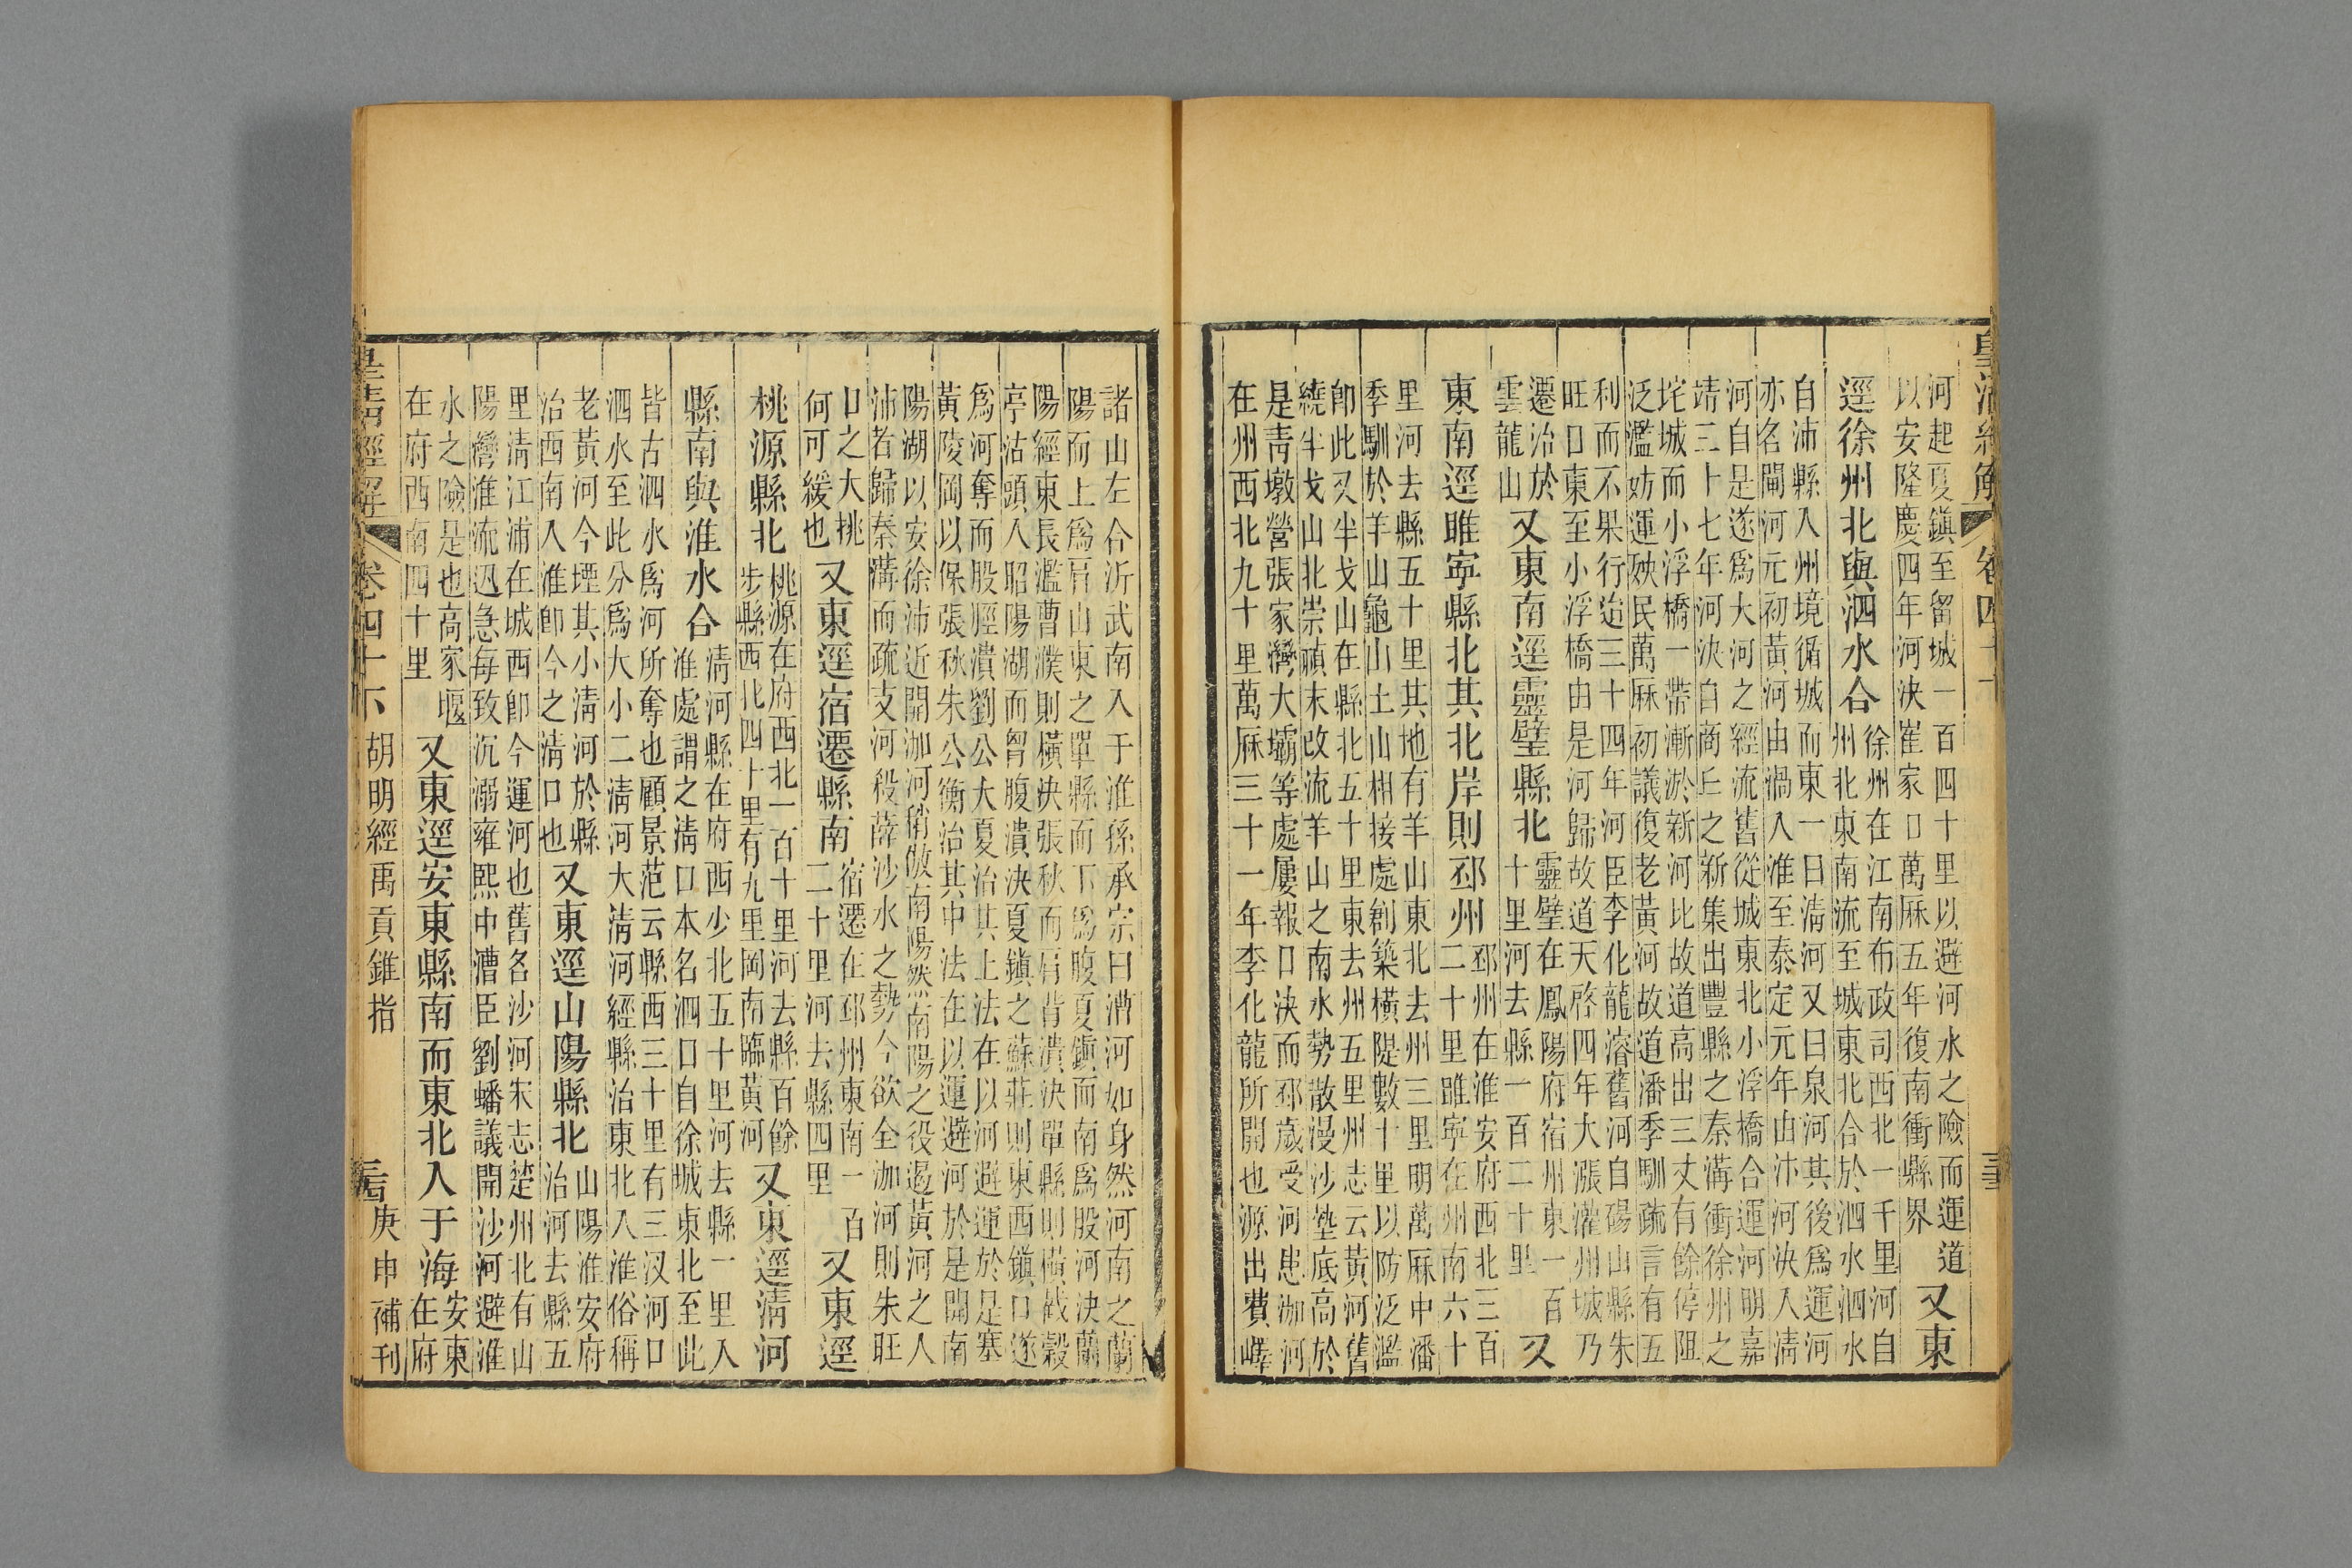 皇清經解 卷四十下 三
河起夏鎭至留城一百四十里以避河水之險而運道
以安隆慶四年河決崔家口萬厤五年復南衝縣界
又東
逕徐州北與泗水合
徐州在江南布政司西北一千里河自
州北東南流至城東北合於泗水泗水
自沛縣入州境循城而東一曰淸河又曰泉河其後爲運河
亦名閘河元初黃河由渦入淮至泰定元年由汴河決入淸
河自是遂爲大河之經流舊從城東北小浮橋合運河明嘉
靖三十七年河決自商丘之新集出豐縣之秦溝衝徐州之
垞城而小浮橋一帶漸淤新河比故道高出三丈有餘停阻
泛濫妨運殃民萬厤初議復老黃河故道潘季馴疏言有五
利而不果行迨三十四年河臣李化龍濬舊河自碭山縣朱
旺口東至小浮橋由是河歸故道天啓四年大漲灌州城乃
遷治於
雲龍山
又東南逕靈璧縣北
靈璧在鳳陽府宿州東一百
十里河去縣一百二十里
又
東南逕睢寧縣北其北岸則邳州
邳州在淮安府西北三百
二十里睢寧在州南六十
里河去縣五十里其地有羊山東北去州三里明萬厤中潘
季馴於羊山龜山土山相接處創築橫隄數十里以防泛濫
卽此又半戈山在縣北五十里東去州五里州志云黃河舊
繞半戈山北崇禎末改流羊山之南水勢散漫沙墊底高於
是靑墩營張家灣大壩等處屢報口決而邳歲受河患泇河
在州西北九十里萬厤三十一年李化龍所開也源出費嶧
諸山左合沂武南入于淮孫承宗曰漕河如身然河南之蘭
陽而上爲肩山東之單縣而下爲腹夏鎭而南爲股河決蘭
陽經東長濫曹濮則橫決張秋而肩背潰決單縣則橫截穀
亭沽頭入昭陽湖而胷腹潰決夏鎭之蘇莊則東西鎭口遂
爲河奪而股脛潰劉公大夏治其上法在以河避運於是塞
黃陵岡以保張秋朱公衡治其中法在以運避河於是開南
陽湖以安徐沛近開泇河稍倣南陽然南陽之役遏黃河之入
沛者歸秦溝而疏支河殺薛沙水之勢今欲全泇河則朱旺
口之大挑
何可緩也
又東逕宿遷縣南
宿遷在邳州東南一百
二十里河去縣四里
又東逕
桃源縣北
桃源在府西北一百十里河去縣百餘
步縣西北四十里有九里岡南臨黃河
又東逕淸河
縣南與淮水合
淸河縣在府西少北五十里河去縣一里入
淮處謂之淸口本名泗口自徐城東北至此
皆古泗水爲河所奪也顧景范云縣西三十里有三汊河口
泗水至此分爲大小二淸河大淸河經縣治東北入淮俗稱
老黃河今堙其小淸河於縣
治西南入淮卽今之淸口也
又東逕山陽縣北
山陽淮安府
治河去縣五
里淸江浦在城西卽今運河也舊名沙河宋志楚州北有山
陽灣淮流迅急每致沉溺雍熙中漕臣劉蟠議開沙河避淮
水之險是也高家堰
在府西南四十里
又東逕安東縣南而東北入于海
安東
在府
皇清經解 卷四十下 胡明經禹貢錐指 庚申補刊